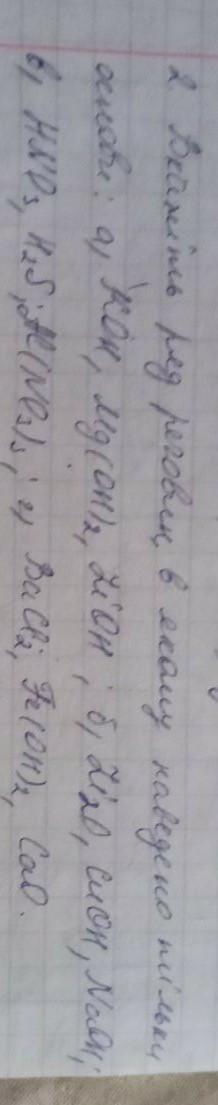 2. Вкажіть ряд речовин, в якому наведено тільки
основи: а, KOH, Mg(OH)₂, LiOH; б, Li₂O, CuOH, NaOH;
в, HNO₃, H₂S, Al(NO₃)₃; г, BaCl₂, Fe(OH)₂, CaO.